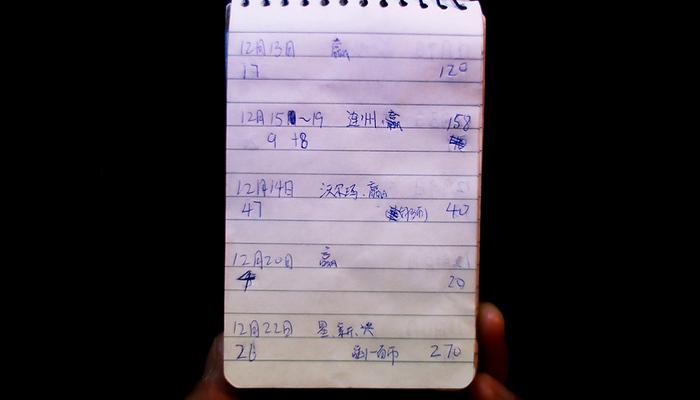 12月13日 赢
17 120
12月15~19 连州.赢 158
9 +8
12月14日 沃尔玛.赢
47 40
12月20日 赢
20
12月22日 星.新.央
26 270